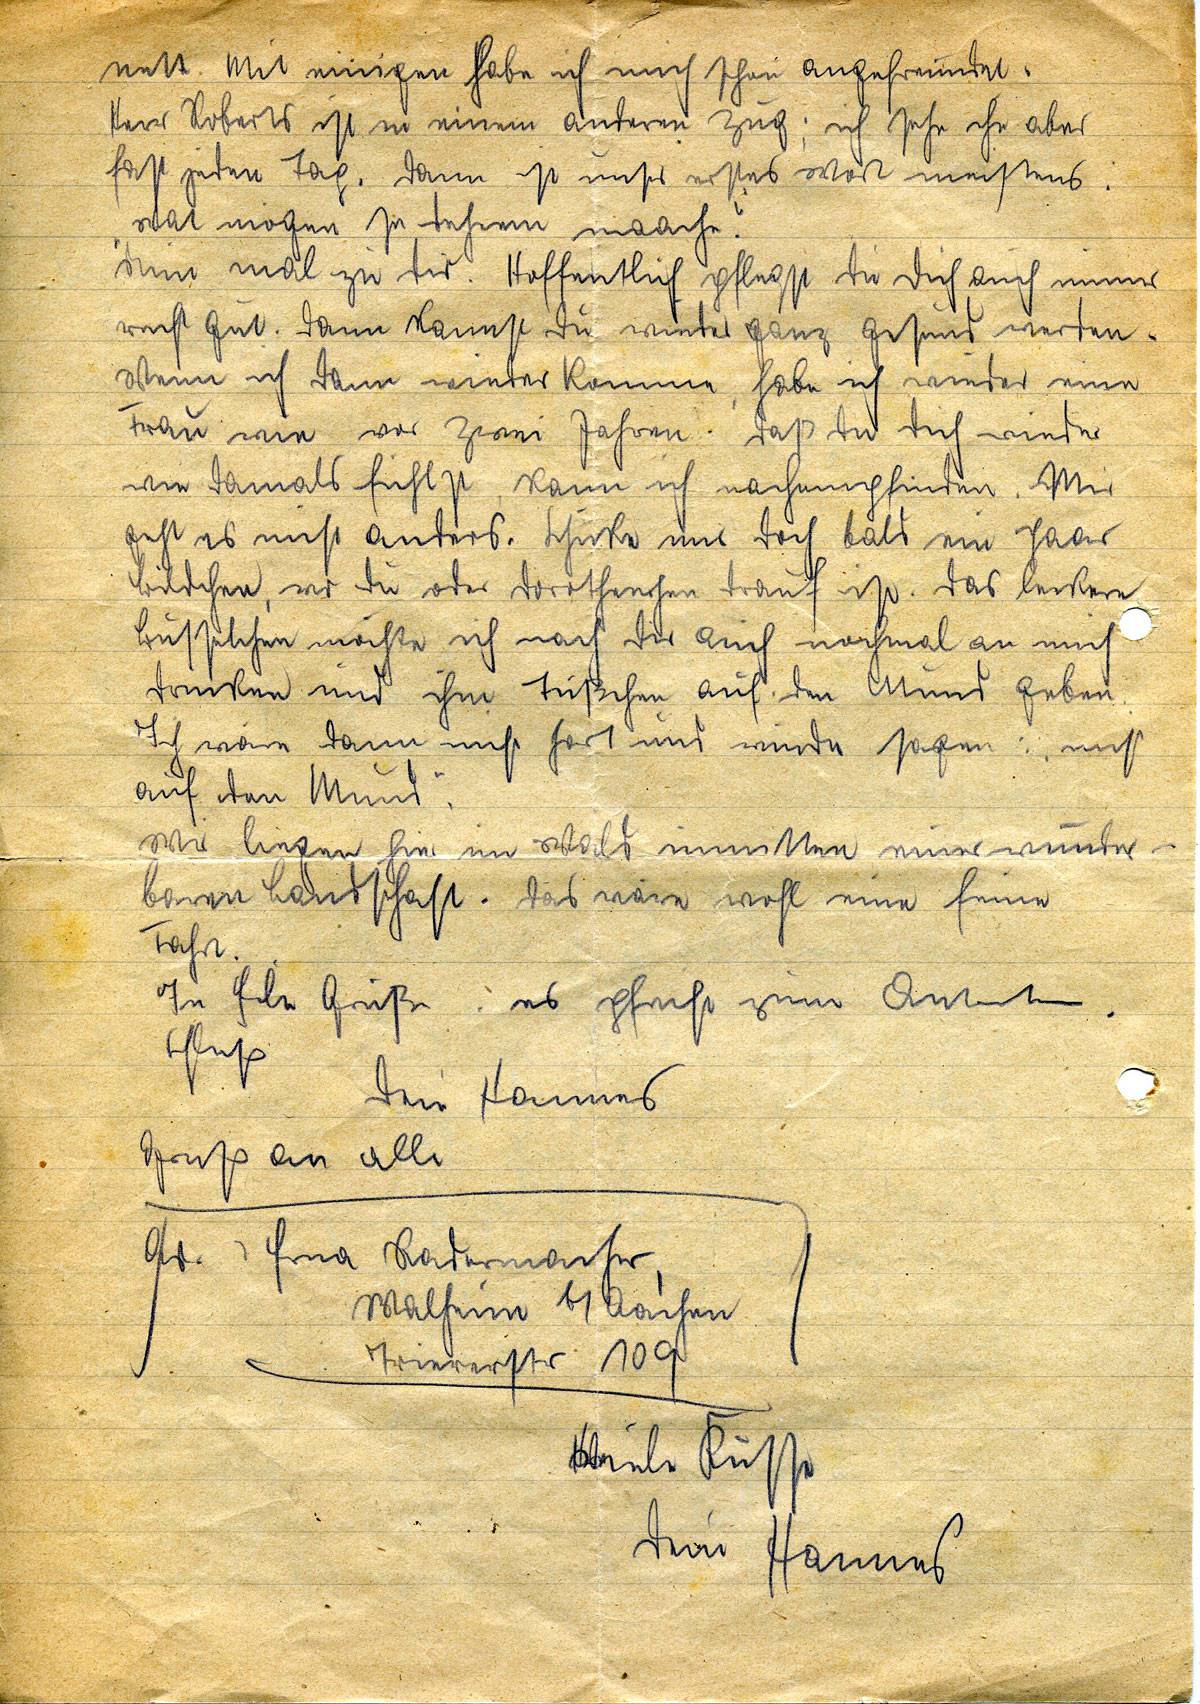 nett. Mit einigen habe ich mich schon angefreundet.
Herr Roberts ist in einem anderen Zug; ich sehe ihn aber
fast jeden Tag. Dann ist unser erstes Wort meistens:
"Wat mögen se deheem maache?"
Nun mal zu Dir. Hoffentlich pflegst Du Dich auch immer
recht gut. Dann kannst Du wieder ganz gesund werden.
Wenn ich dann wieder komme, habe ich wieder eine
Frau wie vor zwei Jahren. Daß Du Dich wieder
wie damals fühlst, kann ich nachempfinden. Mir
geht es nicht anders. Schicke mir doch bald ein paar
Bildchen, wo Du oder Dorotheechen drauf ist. Das leckere
Büsselchen möchte ich nach Dir auch nochmal an mich
drücken und ihm auf den Mund geben.
Ich wäre dann nicht fort und würde sagen: "nicht
auf den Mund".
Wir liegen hier im Wald inmitten einer wunder-
baren Landschaft. Das wäre wohl eine feine
Fahrt.
Grüße es zum
Schluß
Dein Hannes
Gruß an alle
Erna Radermacher,
Walheim b/ Aachen
Triererstr 109
Viele Küsse
Dein Hannes